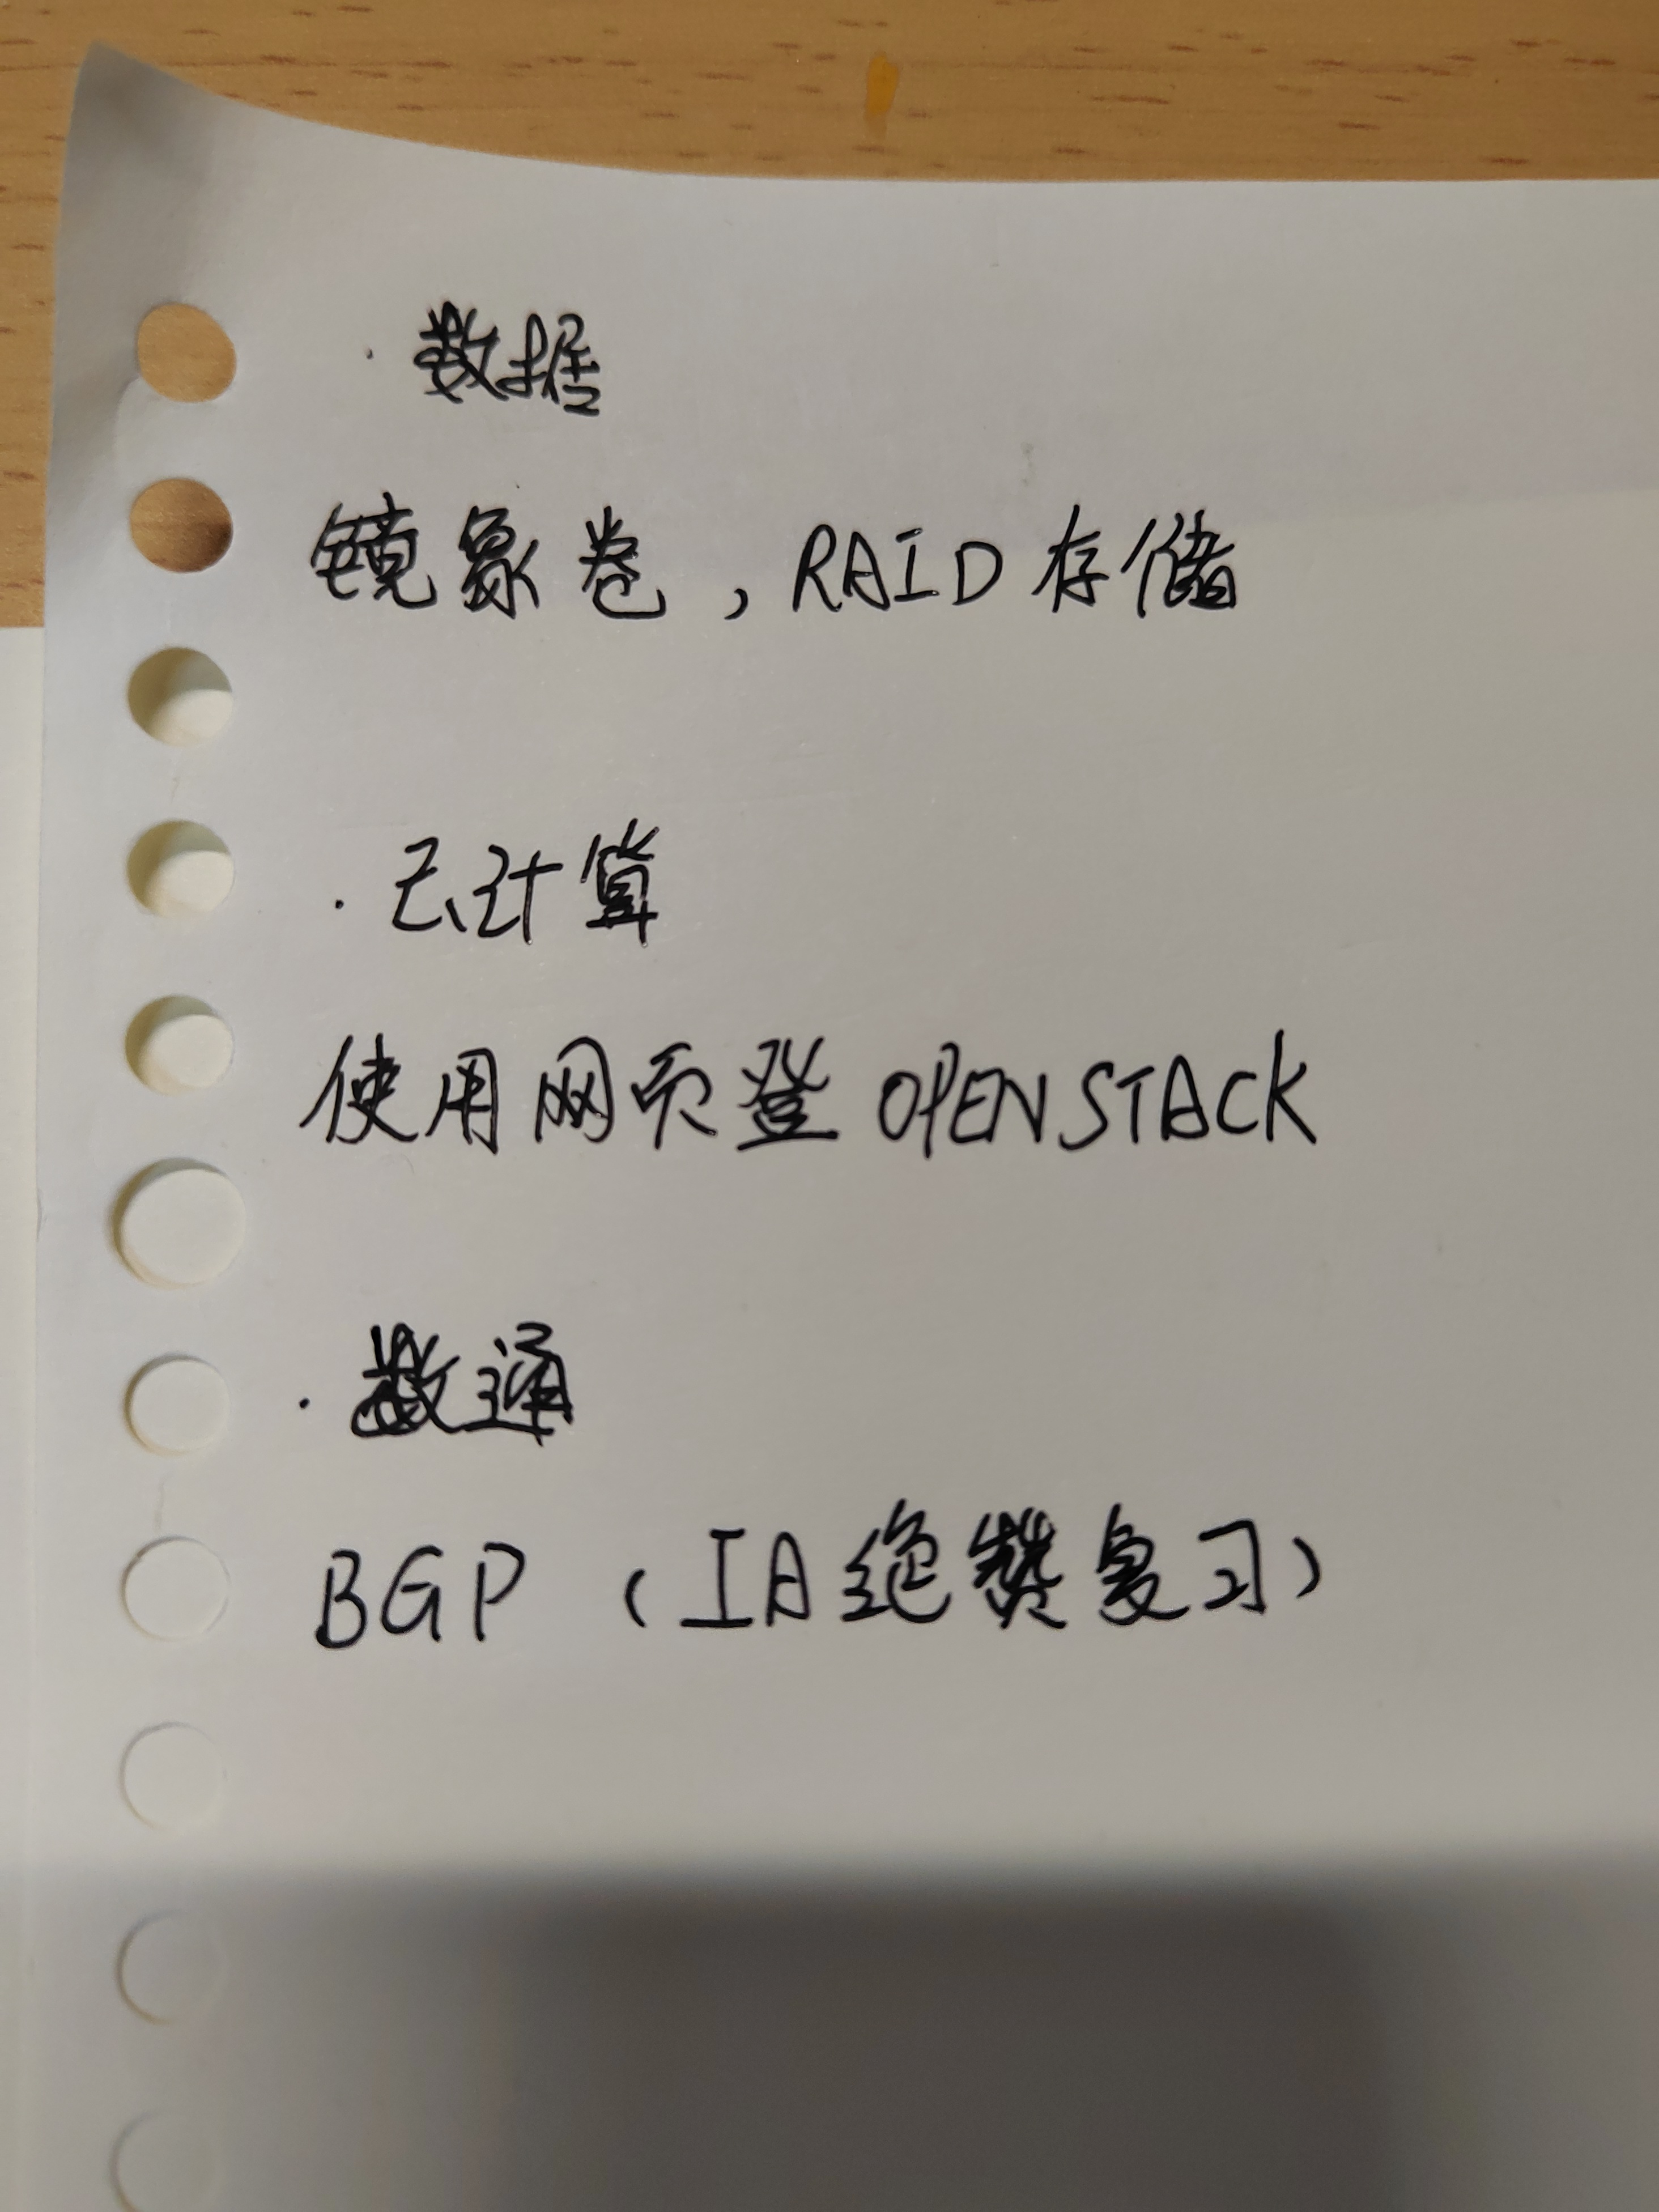 · 数据
镜象卷，RAID存储
· 云计算
使用网页登OPENSTACK
· 数通
BGP（IA绝赞复习）